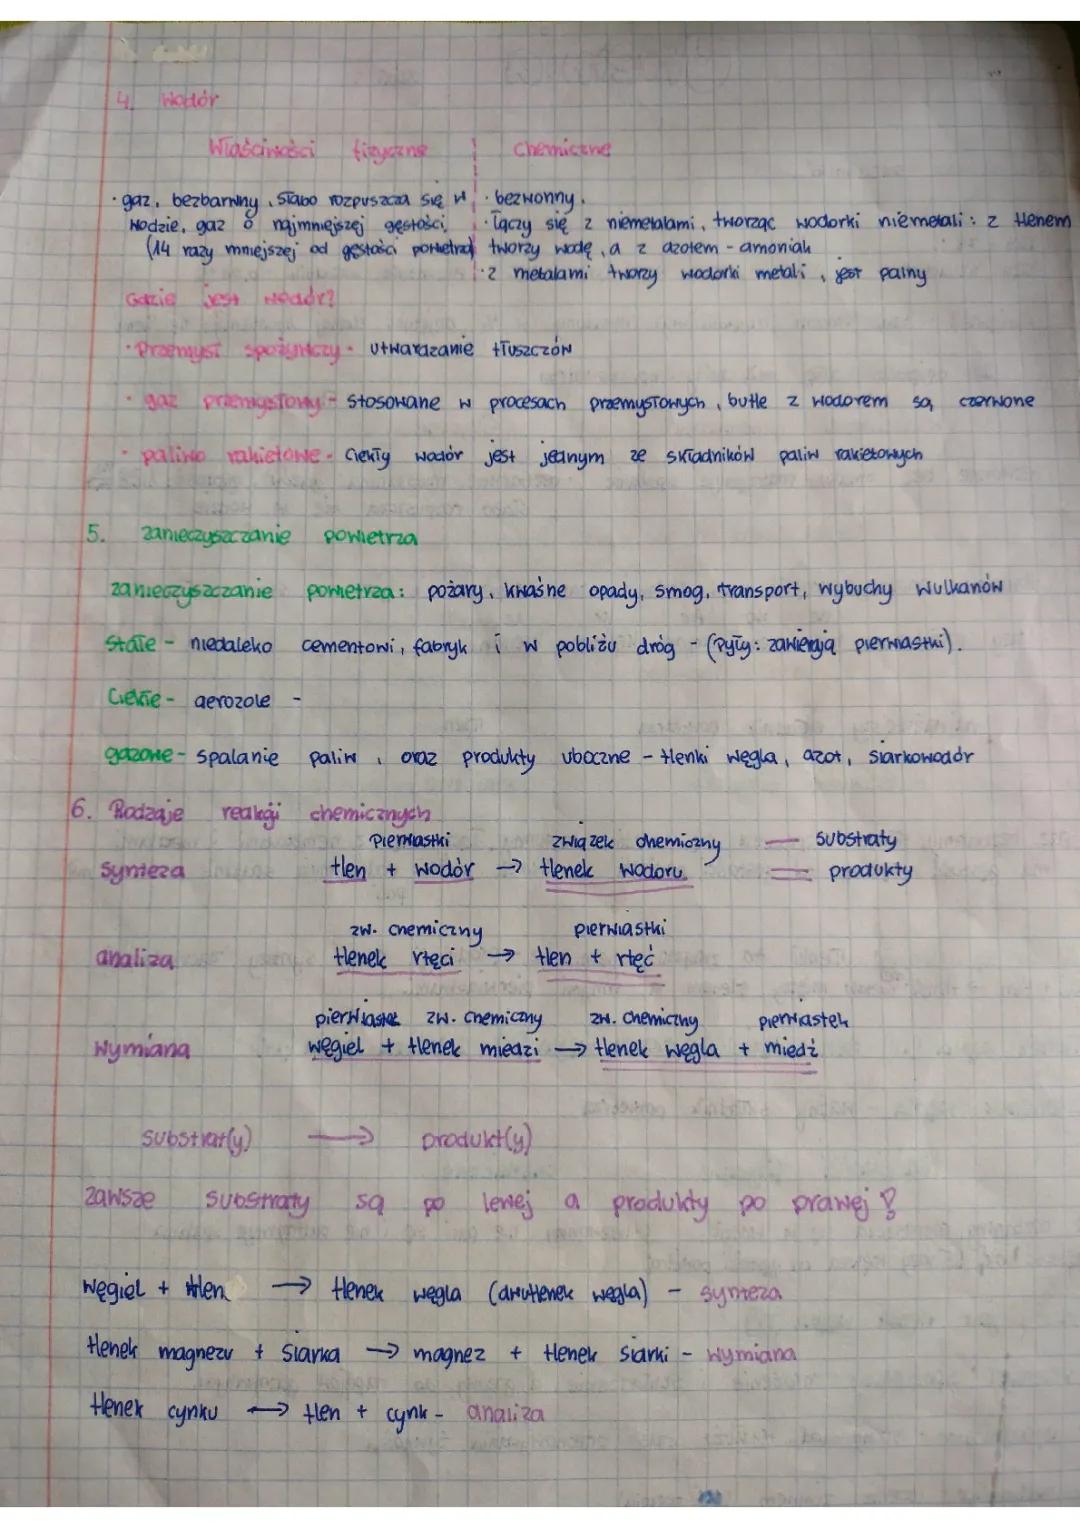 4. Wodór
Właściwości fizyczne
Chemiczne
· gaz, bezbarwny, słabo rozpuszcza się w
wodzie, gaz o najmniejszej gęstości
(14 razy mniejszej od gęstości powietrza)
· bezwonny.
· łączy się z niemetalami, tworząc wodorki niemetali: z tlenem
tworzy wodę, a z azotem - amoniak
· z metalami tworzy wodorki metali, jest palny
Gdzie jest wodór?
· Przemysł spożywczy - utwardzanie tłuszczów
· gaz przemysłowy - stosowane w procesach przemysłowych, butle z wodorem są czerwone
· paliwo rakietowe - Ciekły wodór jest jednym ze składników paliw rakietowych
5. zanieczyszczanie powietrza
zanieczyszczanie powietrza: pożary, kwaśne opady, smog, transport, wybuchy wulkanów
Stałe - niedaleko cementowi, fabryk i w pobliżu dróg - (Pyły: zawierają pierwiastki).
Ciekłe - aerozole -
gazowe - spalanie paliw, oraz produkty uboczne - tlenki węgla, azot, siarkowodór
6. Rodzaje reakcji chemicznych
Pierwiastki związek chemiczny — substraty
Synteza tlen + wodór → tlenek wodoru = produkty
zw. chemiczny pierwiastki
analiza tlenek rtęci → tlen + rtęć
pierwiastek zw. chemiczny zw. chemiczny pierwiastek
Wymiana węgiel + tlenek miedzi → tlenek węgla + miedź
substrat(y) → produkt(y)
zawsze substraty są po lewej a produkty po prawej!
węgiel + tlen → tlenek węgla (dwutlenek węgla) - synteza
tlenek magnezu + siarka → magnez + tlenek siarki - wymiana
tlenek cynku → tlen + cynk - analiza